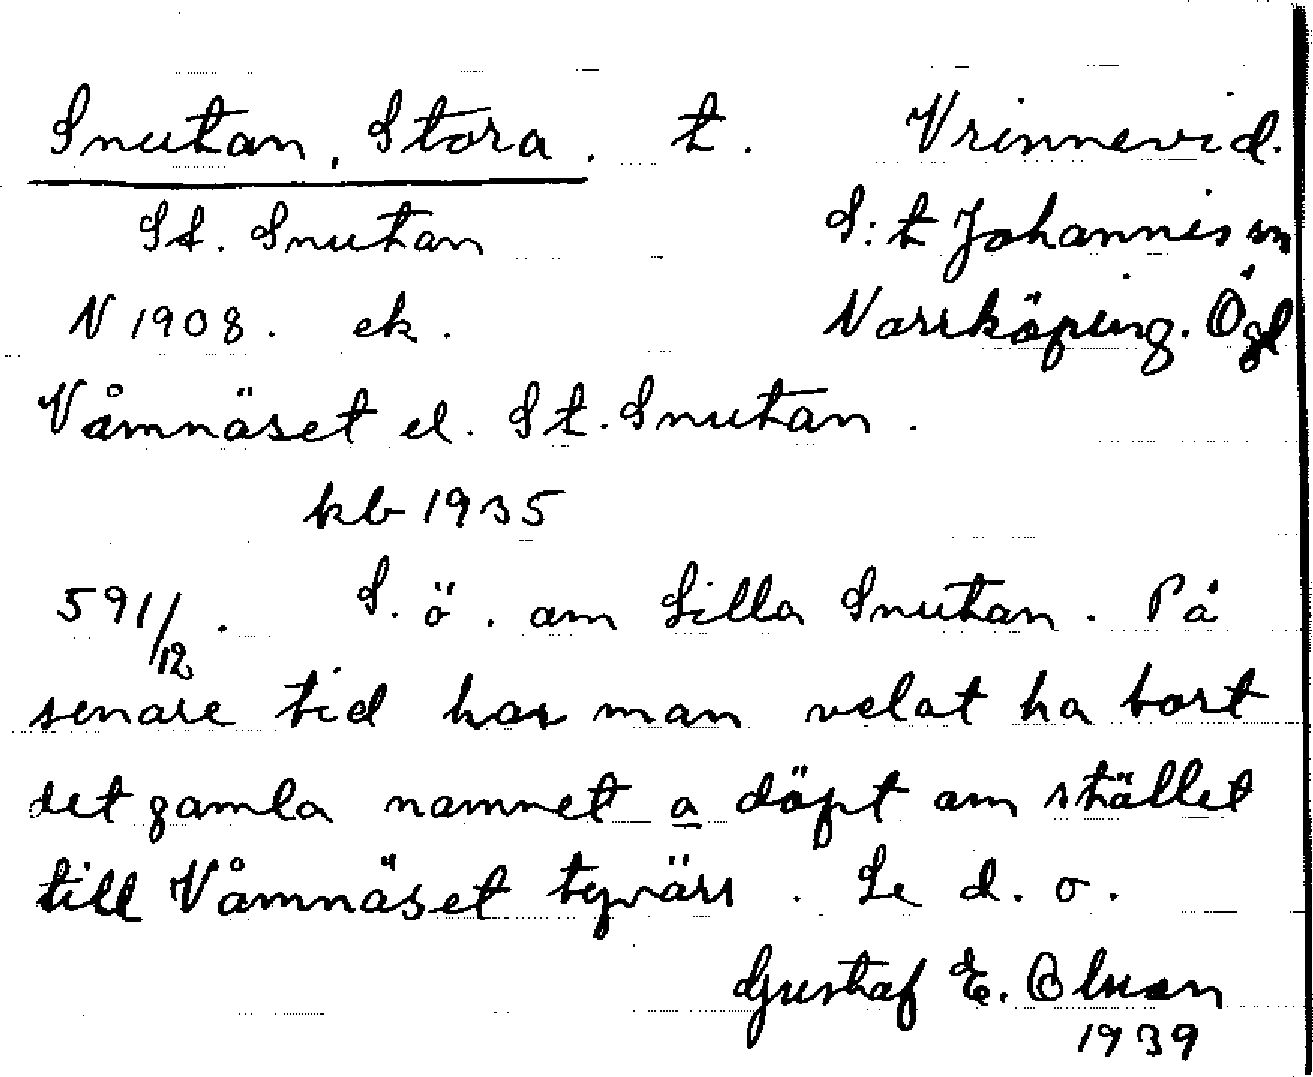 Snutan, Stora. t. Vrinnevid.
St. Snutan S:t Johannis sn
N 1908. ek. Norrköping. Ögl
Våmnäset el. St. Snutan.
kb 1935
591/12. S. ö. om Lilla Snutan. På
senare tid har man velat ha bort
det gamla namnet a döpt om stället
till Våmnäset tyvärr. Se d. o.
Gustaf E. Olsson
1939